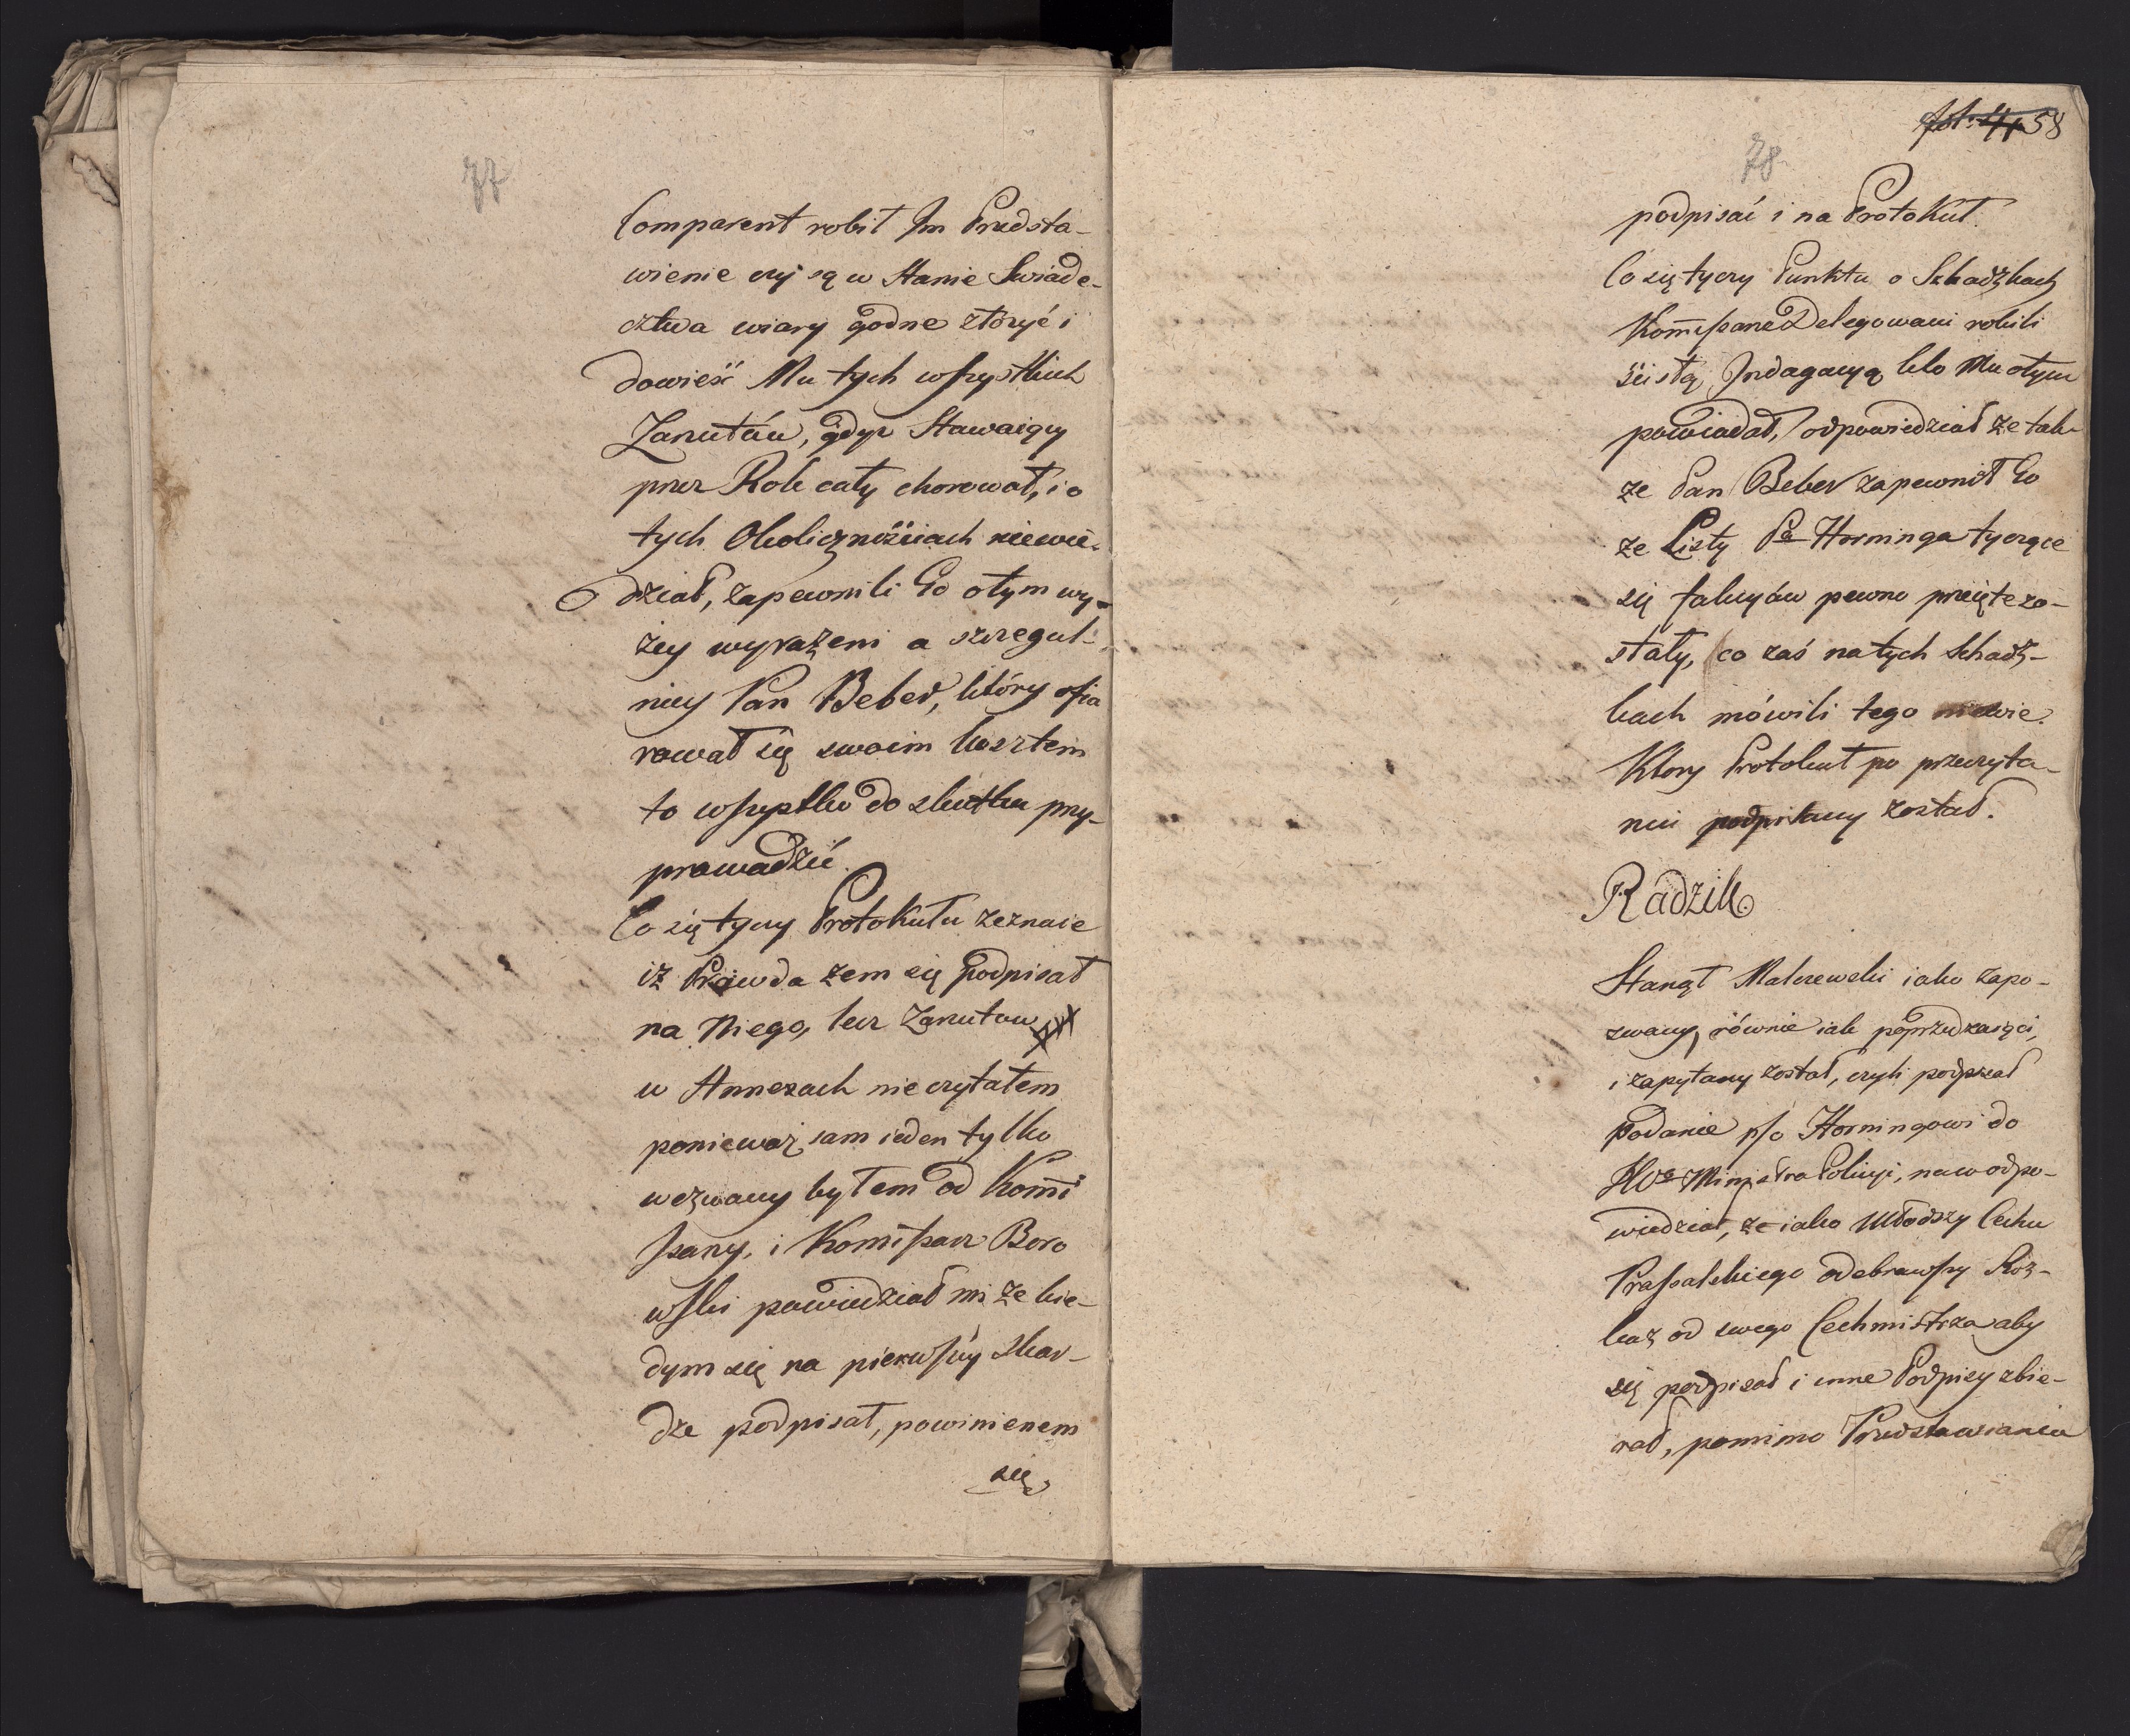 77
Comparent robił Im Przedsta-
wienie czy są w Stanie Swiade-
cztwa wiary godne złożyć i
dowieść Mu tych wszystkich
Zarzutów, gdyż Stawaiący
przez Rok cały chorował, i o
tych Okolicznościach niewie-
dział, zapewnili Go otym wy-
żey wyrażeni a szczegul-
niey Pan Beber, który ofia
rował się swoim kosztem
to wszystko do skutku przy-
prowadzić.
Co się tyczy Protokułu zeznaie
iż Prawda żem się podpisał
na Niego, lecz Zarzutow
w Annexach nie czytałem
ponieważ sam ieden tylko
wezwany byłem od Kommi
ssarzy, i Kommissarz Boro
wski powiedział mi że kie-
dym się na pierwszey Skar-
dze podpisał, powinienem
się
fol: 58
78
podpisać i na Protokuł.
Co się tyczy Punktu o Schadzkach
Kommissarze Delegowani robili
ścisłą Indagacyą kto Mu otym
powiadał, odpowiedział że tak
że Pan Beber zapewnił Go
że Listy Pa Horninga tyczące
się fakcyów pewno przeięte zo-
stały, co zaś na tych Schadz-
kach mówili tego niewie.
Ktory Protokuł po przeczyta-
niu podpisany został.
Radzik
Stanął Malczewski iako zapo-
zwany, równie iak poprzedzaiący,
i zapytany został, czyli podpisał
podanie p/o Horningowi do
JWo Ministra Policyi, na co odpo-
wiedział, że iako Młodszy Cechu
Prassalskiego odebrawszy Roz-
kaz od swego Cechmistrza aby
się podpisał i inne Podpisy zbie-
rał, pomimo Przedstawiania